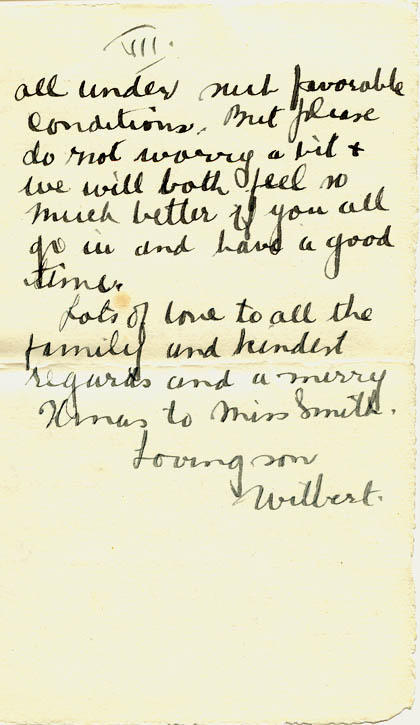 VIII.
all under most favorable
conditions. But please
do not worry a bit +
we will both feel so
much better if you all
go in and have a good
time.
Lots of love to all the
family and kindest
regards and a merry
Xmas to Miss Smith.
Loving son
Wilbert.